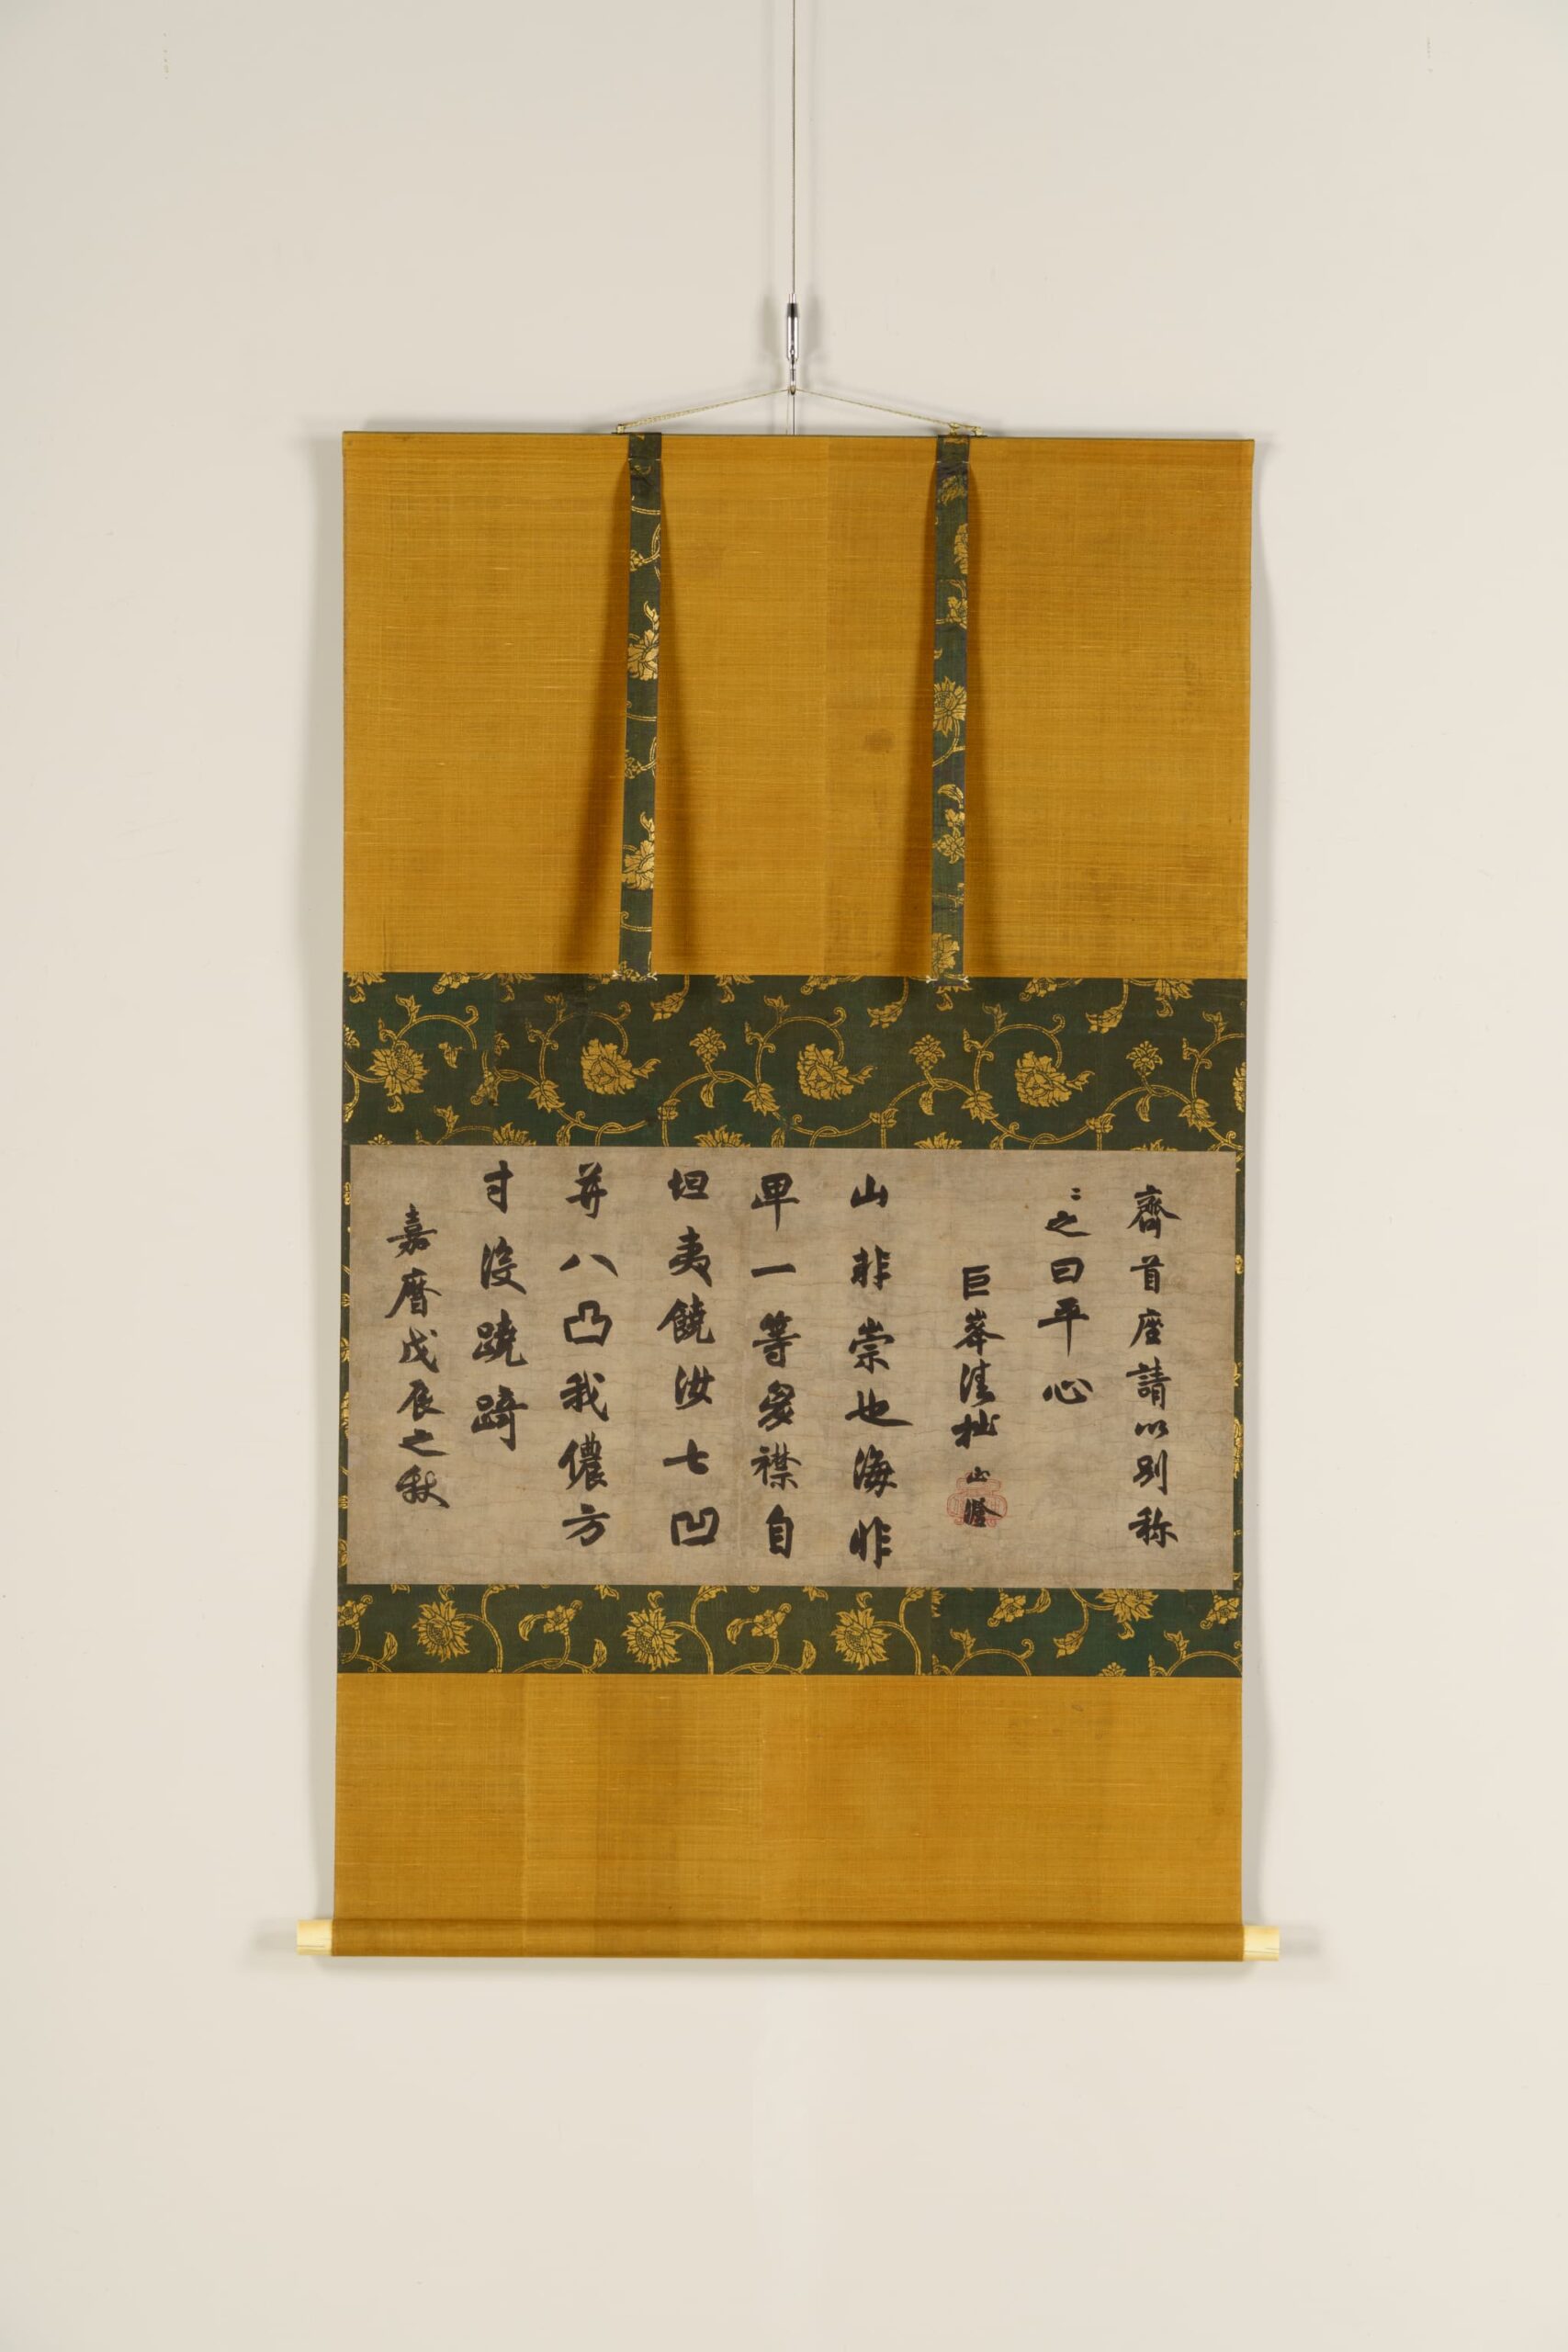 齊首座請以別称
〻之曰平心
巨峯清拙 正澄
山非崇也海非
卑一等胷襟自
坦夷饒汝七凹
并八凸我儂方
寸没蹺踦
嘉曆戊辰之秋